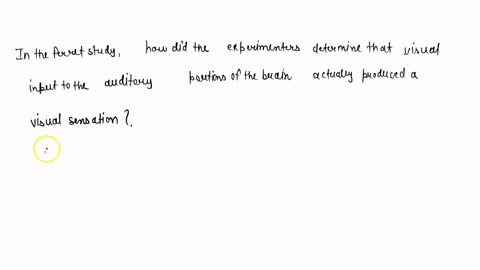 In the ferret study, how did the experimenters determine that visual
input to the auditory portions of the brain actually produced a
visual sensation ?.